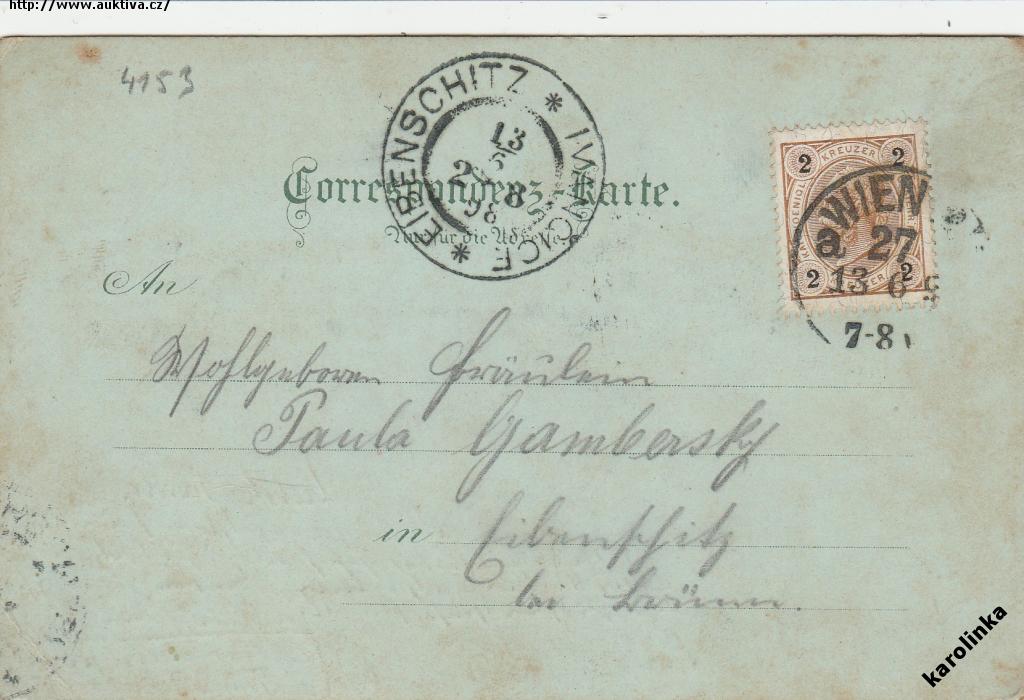 http://www.auktiva.cz/
4153
EIBENSCHITZ * IVANČICE *
13
6
2 8
98
Correspondenz-Karte.
Nur für die Adresse.
2 KREUZER 2
WIEN
a 27
2 13 6 9 2
7-8
An
Wohlgeboren Fräulein
Paula Gambersky
in Eibenschitz
bei Brünn.
karolinka